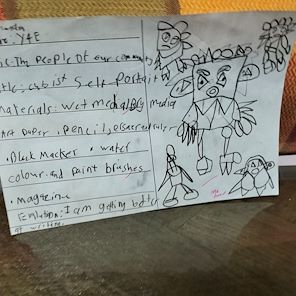 Y4E
The People Of our community
title: cubist Self-Portait
Materials: wet media/Dry media
Art Paper, Pencil,
. Black Marker . water
colour and paint brushes
. magazine
I am getting better
at writing